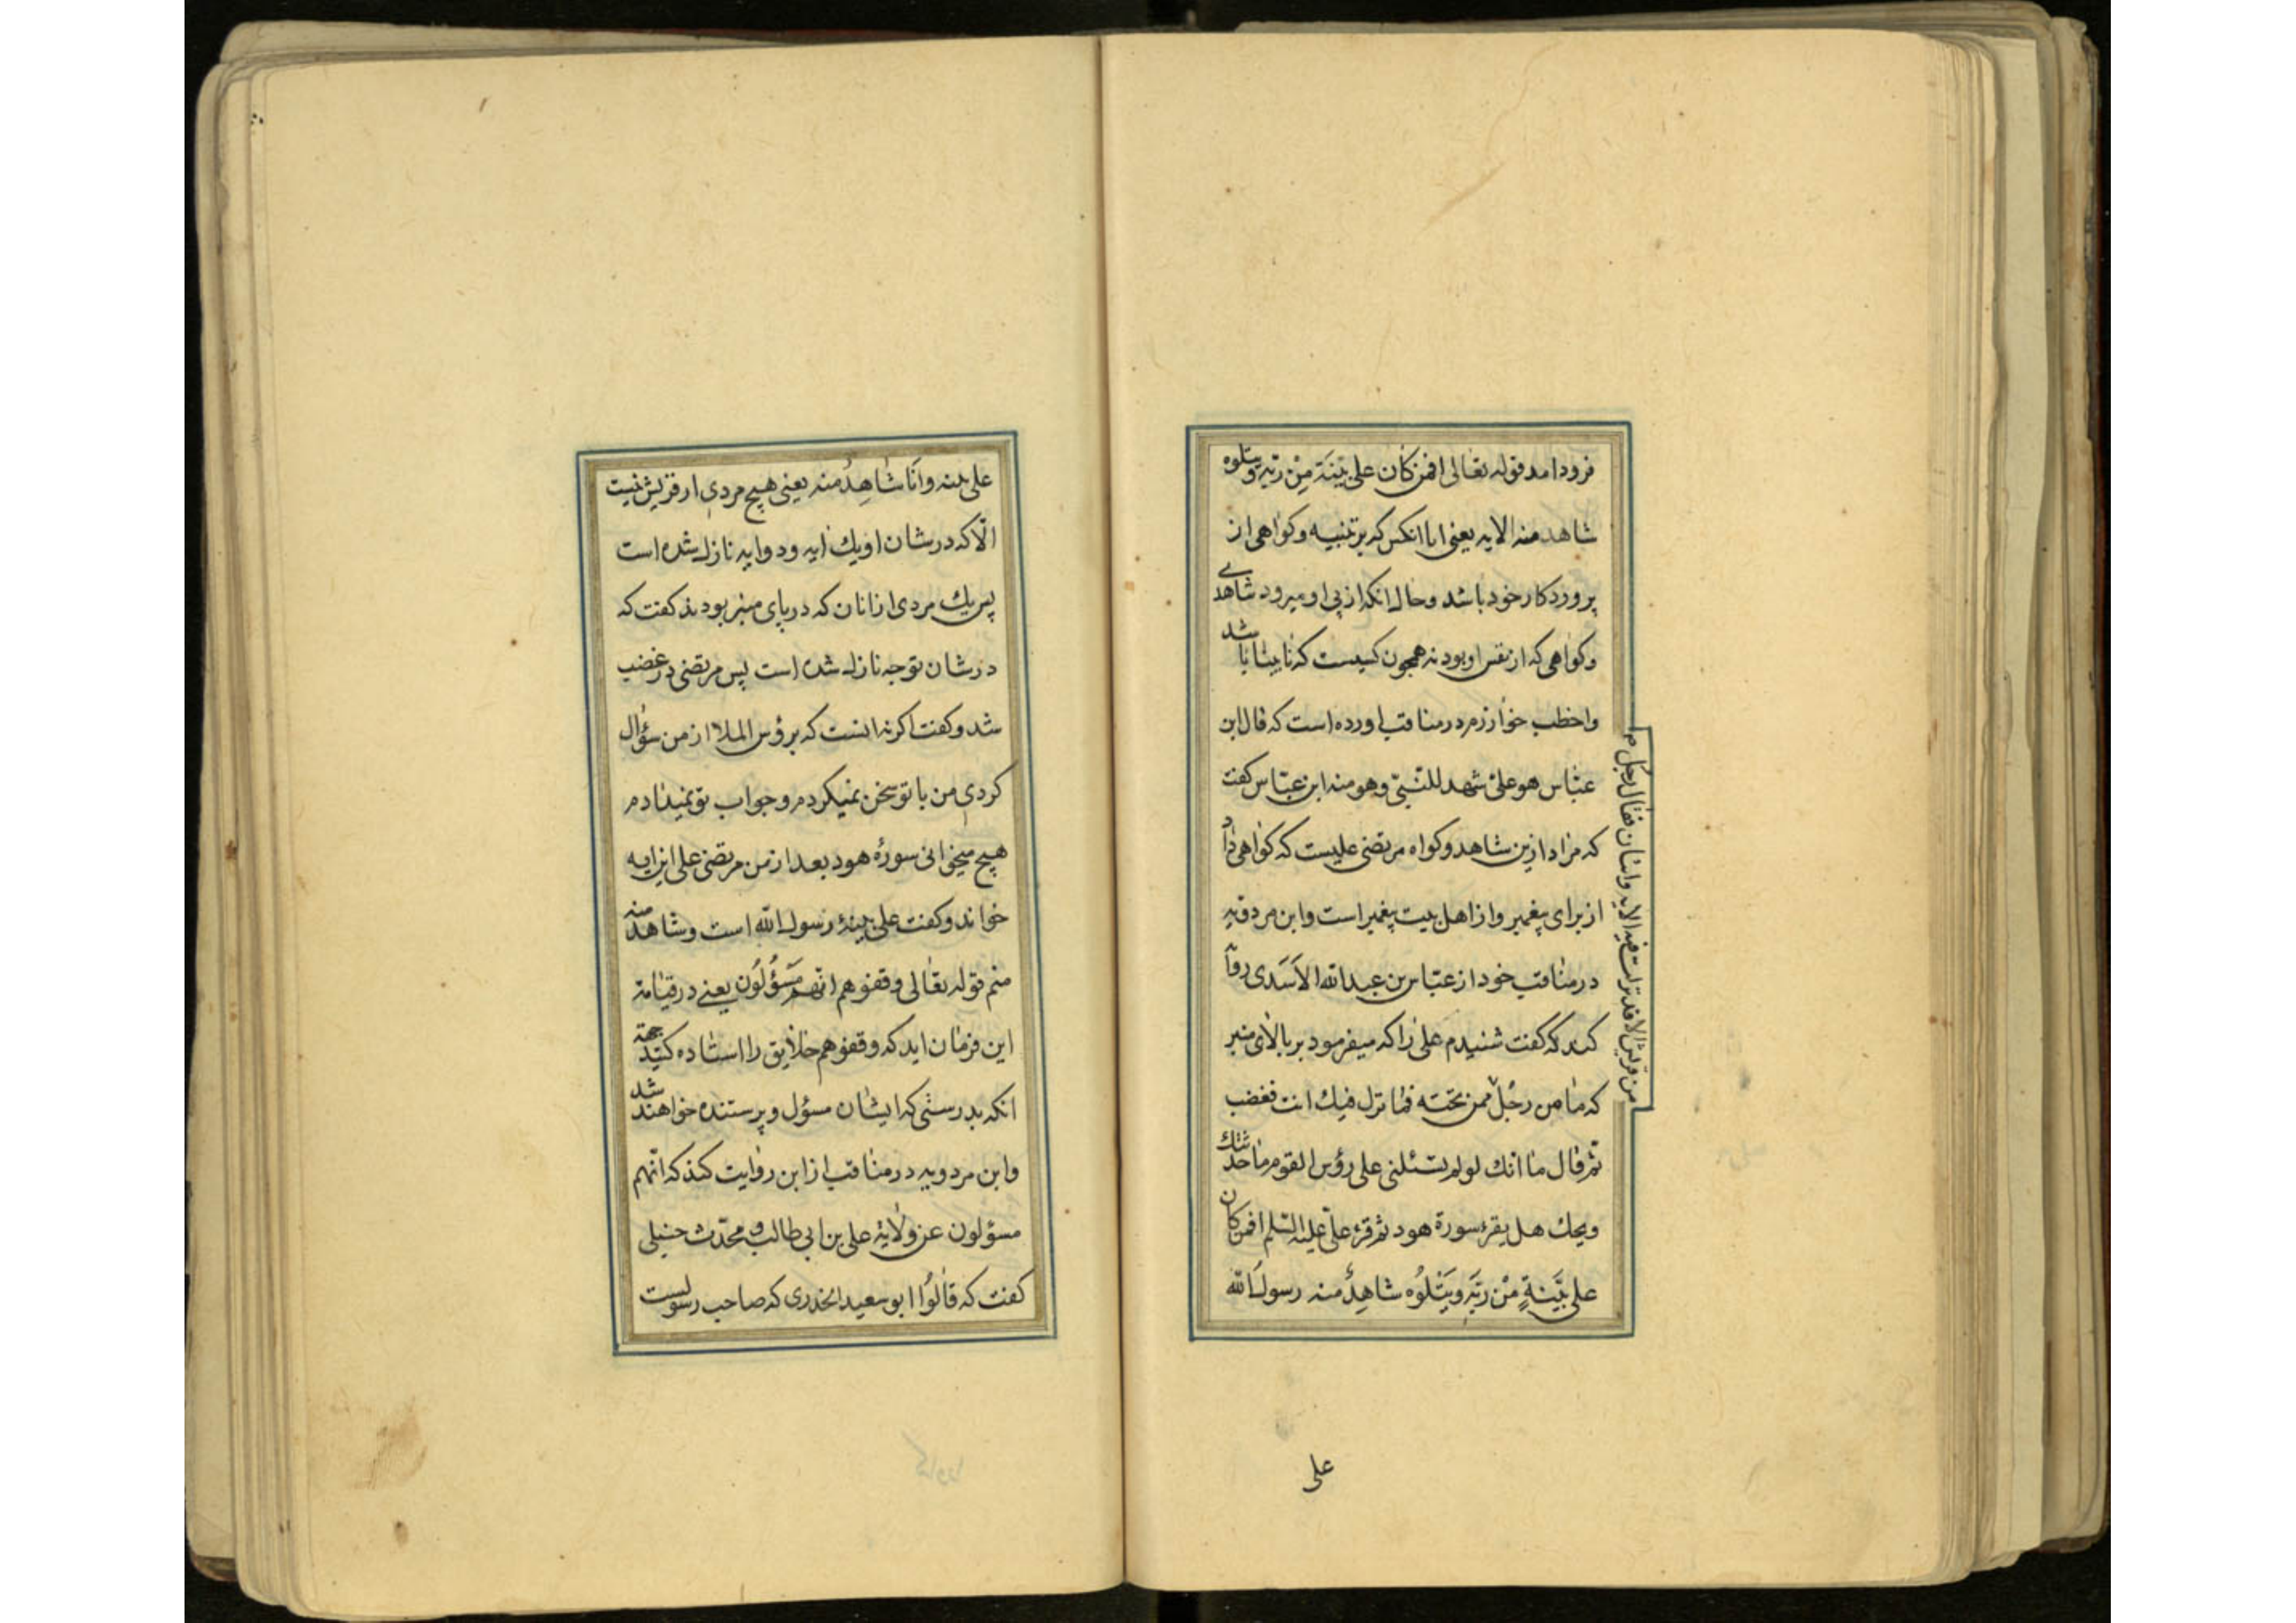 فرود امد قوله تعالى افمن كان على بينة من ربه ويتلوه
شاهد منه الايه يعنى ايا انكس كه بر تنبيه وكواهى از
پروردكار خود باشد وحال انكه از پى او ميرود شاهدى
وكواهى كه از نفس او بود نه همچون كسيست كه نابينا باشد
واخطب خوارزم در مناقب اورده است كه قال ابن
عبّاس هو علىّ شهد للنّبىّ وهو منه ابن عبّاس كفت
كه مراد ازين شاهد وكواه مرتضى عليست كه كواهى داد
از براى پيغمبر واز اهل بيت پيغمبر است وابن مردويه
در مناقب خود از عبّاس بن عبدالله الاَسَدى روآ
كند كه كفت شنيدم على را كه ميفرمود بر بالاى منبر
كه ما من رجُلٌ
من قريش الا قد نزلت فيه الايه وايتان فقال رجل م
ممن تحته فما نزل فيك انت فغضب
ثم قال ما انك لو لم تسئلنى على رؤس القوم ما حدثتك
ويحك هل يقرء سورة هود ثم قرء علىّ عليه السّلم افمن كان
على بَيّنةٍ مِنْ رَبّه وَيَتْلُوُه شاهِدٌ منه رسول الله
على
على بينه واَنَا شاهِدٌ منه يعنى هيچ مردى از قريش نيست
الّا كه در شان او يك ايه ودو ايه نازل شده است
پس يك مردى از انان كه در پاى منبر بودند كفت كه
در شان تو چه نازل شده است پس مرتضى در غضب
شد وكفت اكر نه انست كه برؤس الملاا از من سؤال
كردى من با تو سخن نميكردم وجواب تو نميدادم
هيچ ميخوانى سورۀ هود بعد از من مرتضى على اين ايه
خواند وكفت على بينۀ رسول الله است وشاهد منه
منم قوله تعالى وقفوهم انّهم مَسْؤُلُون يعنى در قيامة
اين فرمان ايد كه وقفوهم خلايق را استاده كنيد جهة
انكه بدرستى كه ايشان مسؤل وپرستنده خواهند شد
وابن مردويه در مناقب از ابن روايت كند كه انّهم
مسؤلون عن ولاية على بن ابى طالب و محدّث حنبلى
كفت كه قالُوا ابو سعيد الخدرى كه صاحب رسولست